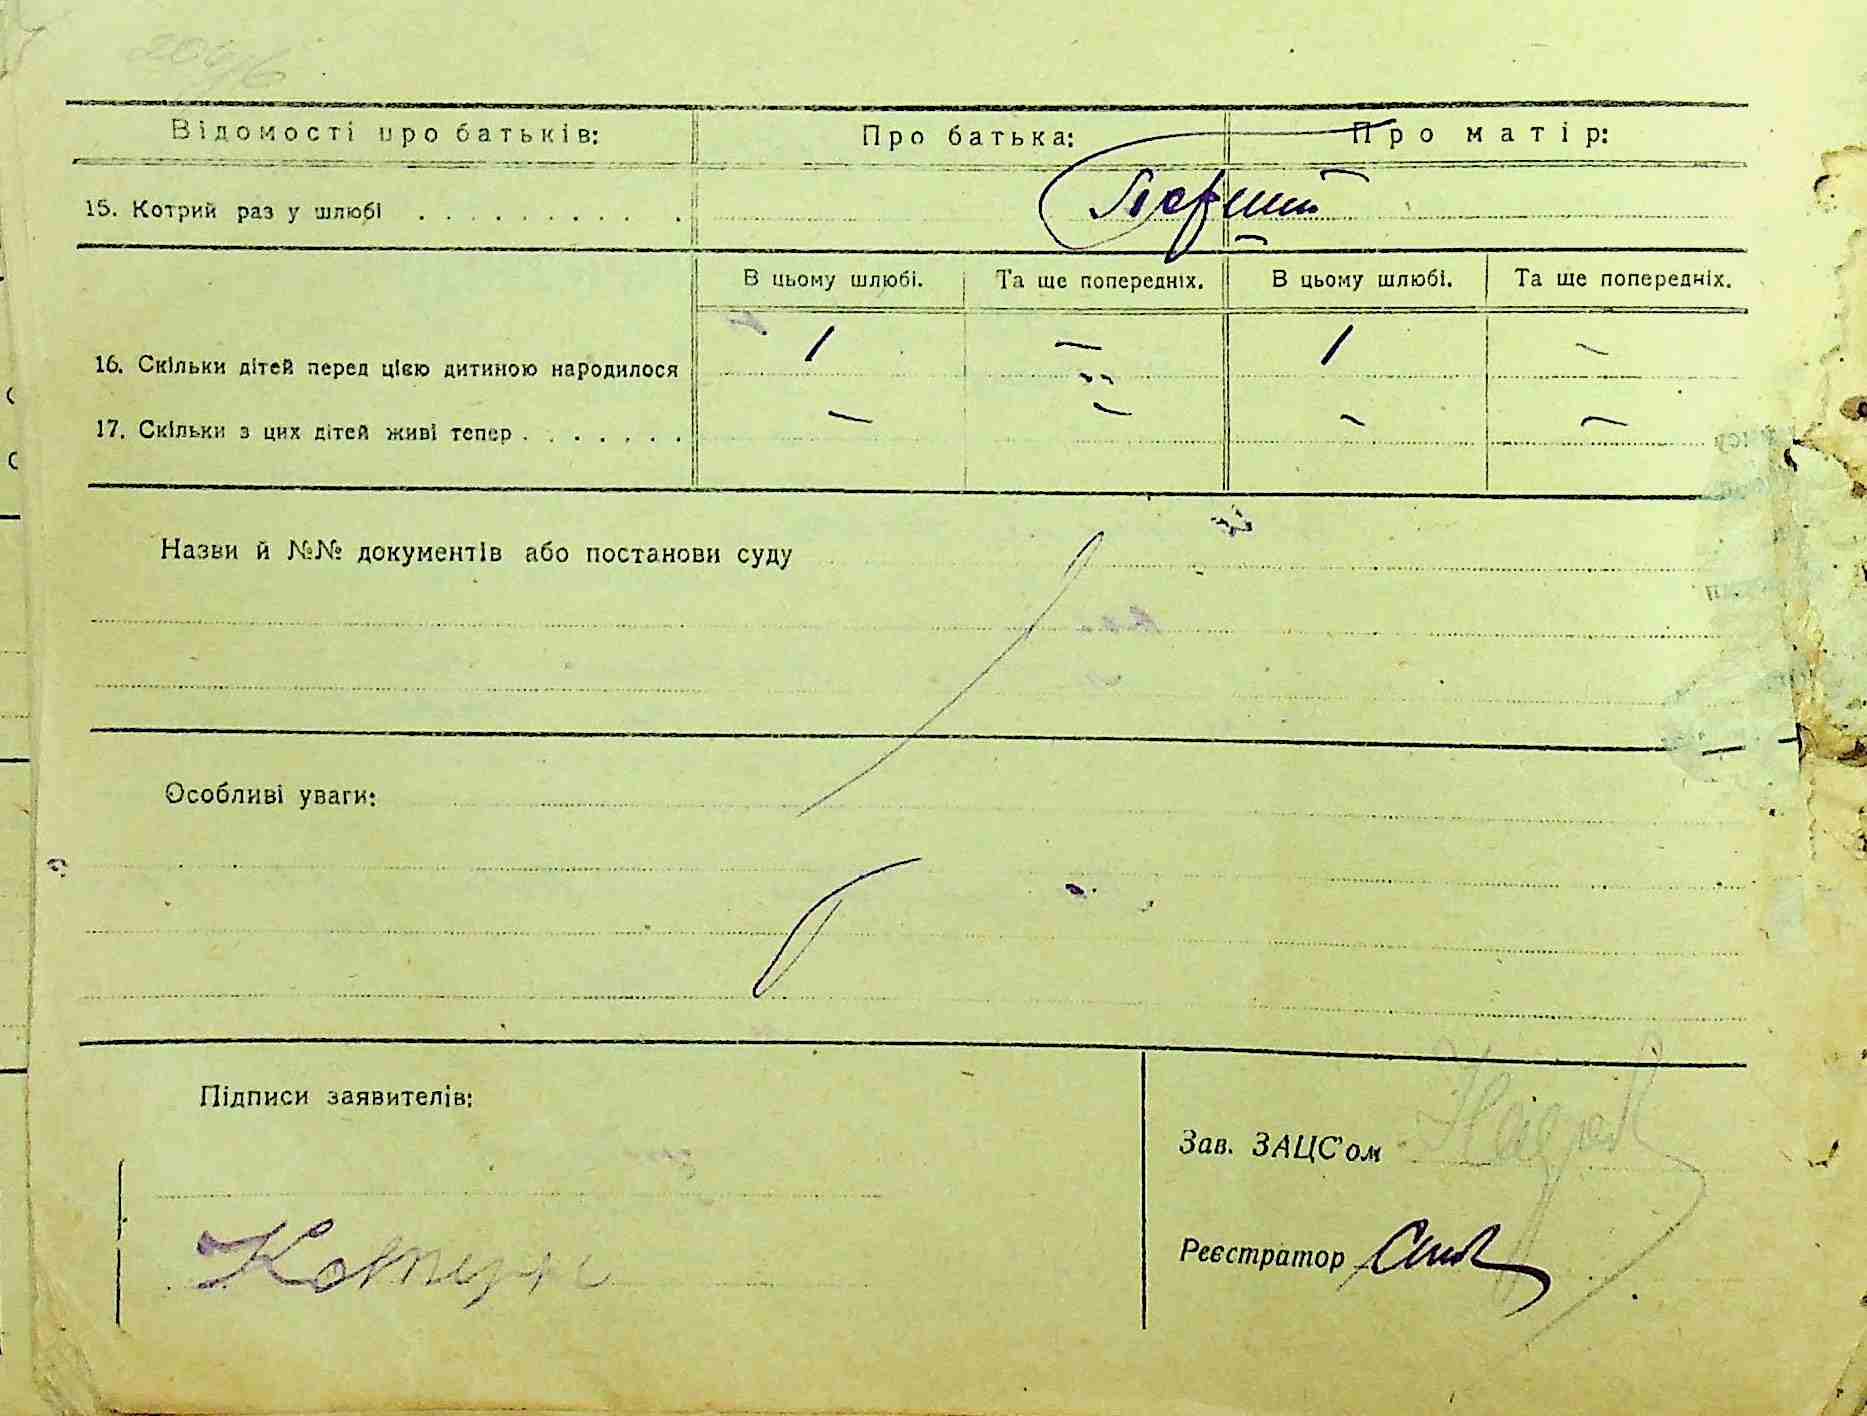 Відомості про батьків: Про батька: Про матір:
15. Котрий раз у шлюбі . . . . . . . . . . Перший
В цьому шлюбі. Та ще попередніх. В цьому шлюбі. Та ще попередніх.
16. Скільки дітей перед цією дитиною народилося 1 — 1 —
17. Скільки з цих дітей живі тепер . . . . . . . — — — —
Назви й №№ документів або постанови суду
Особливі уваги:
Підписи заявителів:
Зав. ЗАЦС'ом
Реєстратор